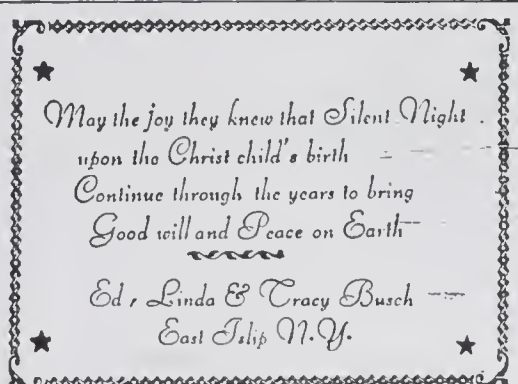 May the joy they knew that Silent Night
upon the Christ child's birth
Continue through the years to bring
Good will and Peace on Earth
Ed, Linda & Tracy Busch
East Islip N.Y.